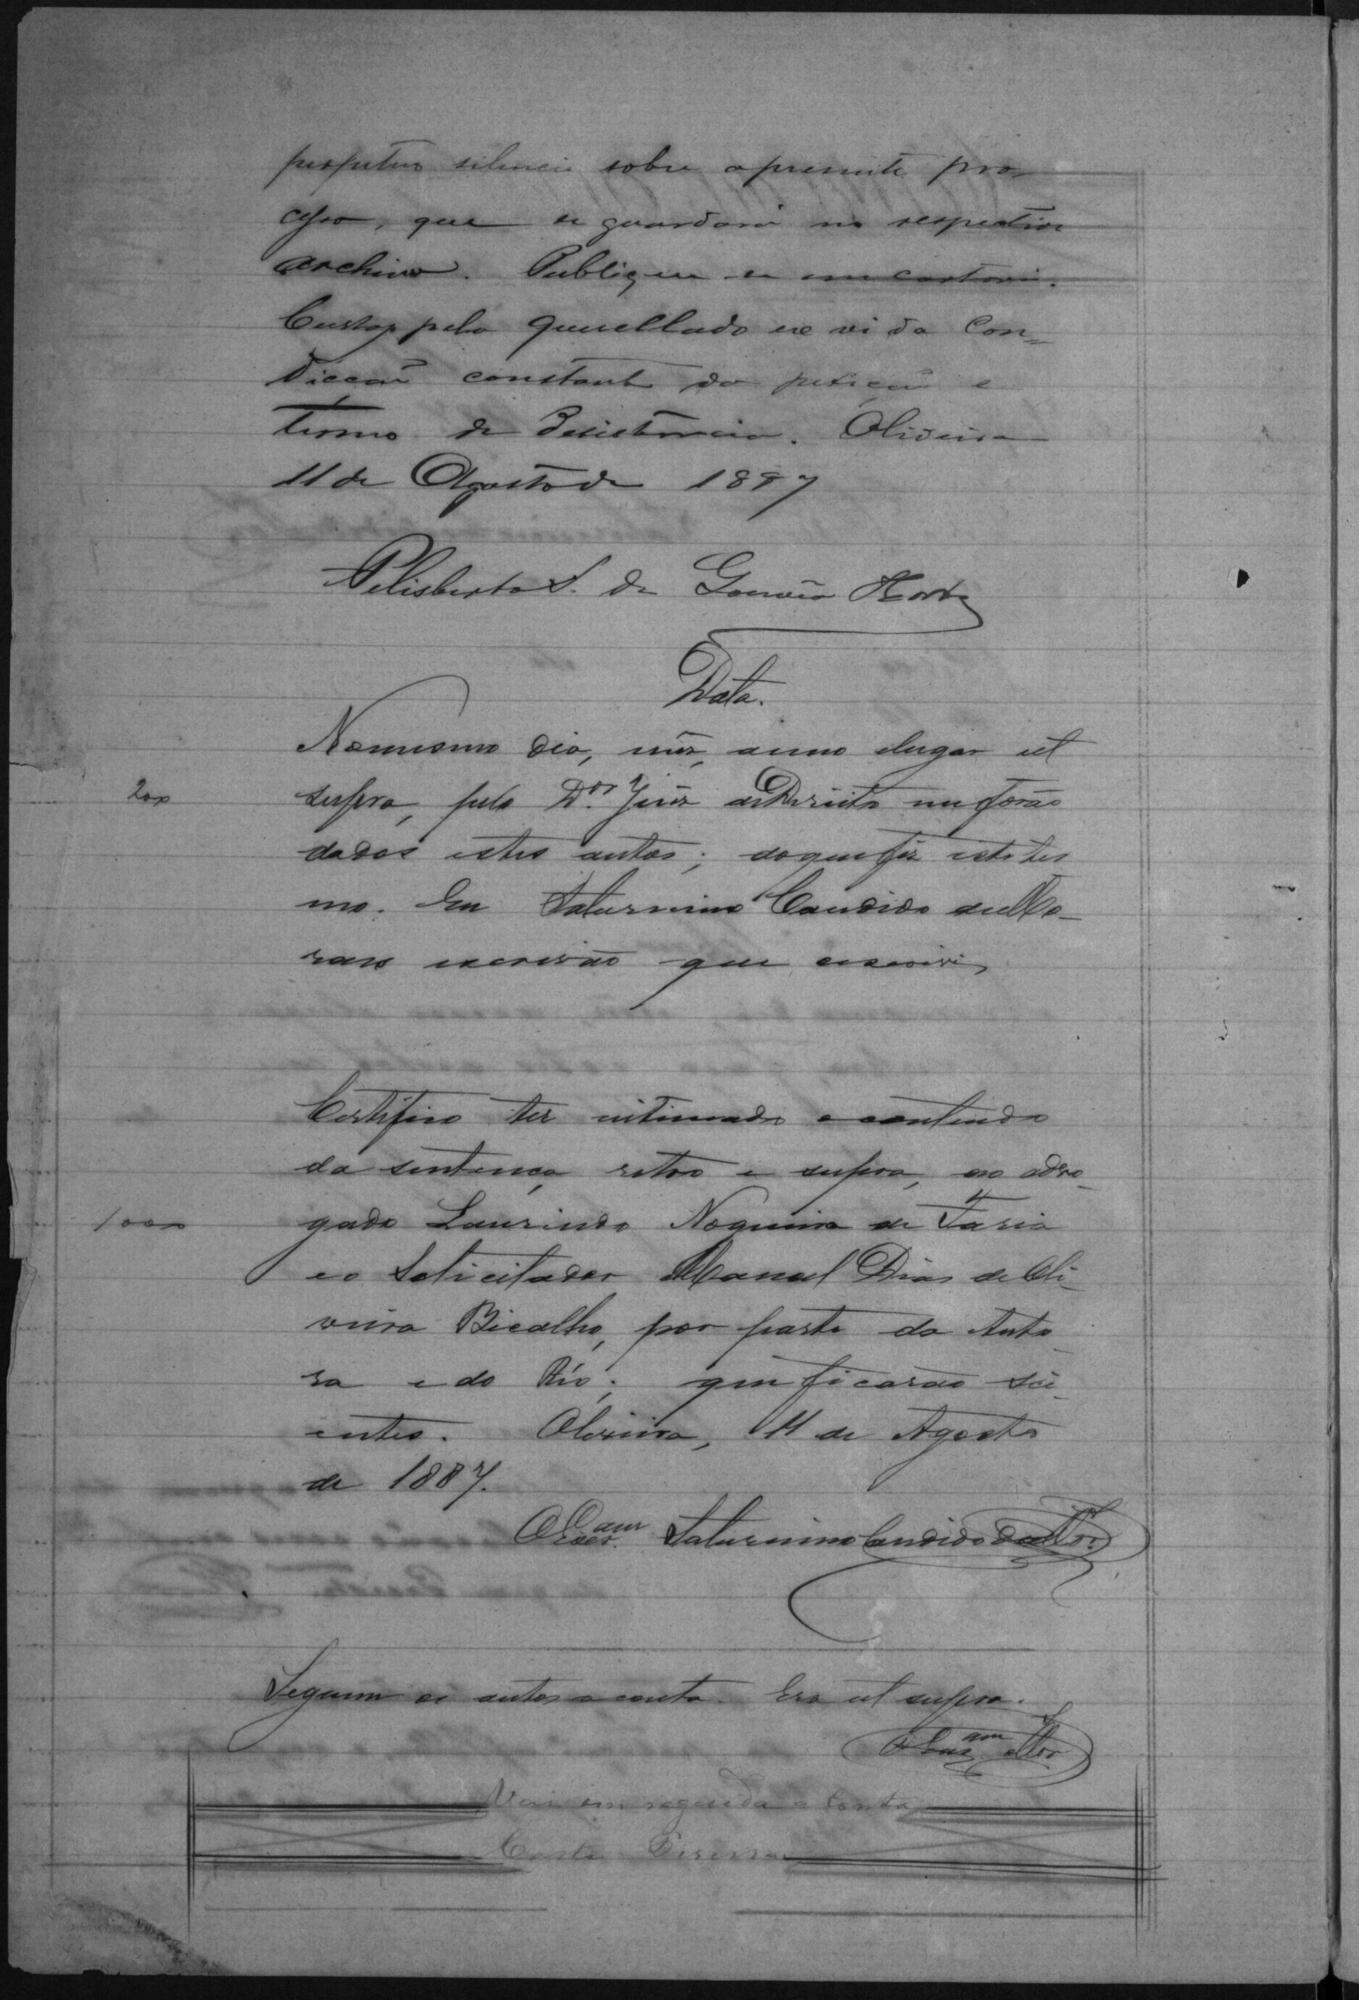 perpetuo silencio sobre o presente pro-
cesso, que se guardará no respectivo
archivo. Publique se em cartorio.
Custas pelo querellado ex vi da con-
dicção constante da petição e
termo de desistencia. Oliveira
11 de Agosto de 1887
Felisberto S. de Gouvêa Horta
Data.
No mesmo dia, mez, anno e lugar ut
200 supra, pelo Dor. Juiz de Direito me forão
dados estes autos; do que fiz este ter
mo. Eu Saturnino Candido de Mo-
raes escrivão que escrevi
Certifico ter intimado o conteudo
da sentença retro e supra, ao advo-
1000 gado Laurindo Nogueira de Faria
e o Solicitador Manoel Dias de Oli-
veira Bicalho, por parte da Auto
ra e do Réo; que ficarão sci-
entes. Oliveira, 11 de Agosto
de 1887.
O Escam Saturnino Candido de Mor.
Seguem os autos a conta. Era ut supra.
Vai em seguida a conta
Costa Pereira